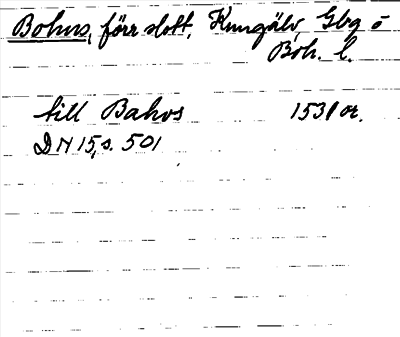 Bohus, förr slott, Kungälv, Gbg o
Boh. l.
till Bahos 1531 or.
DN 15, s. 501